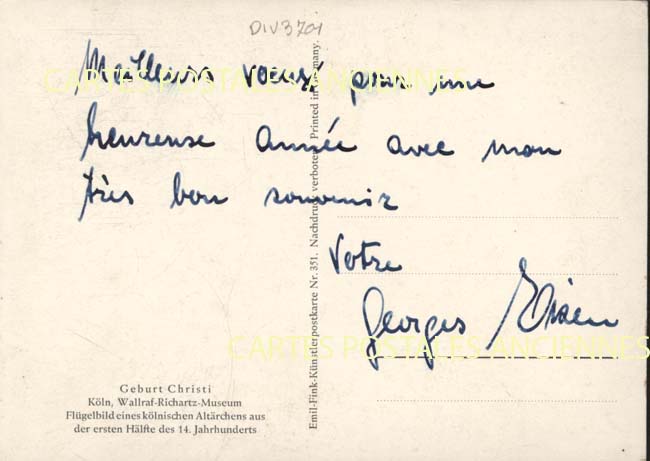 DIV3701
Meilleurs voeux pour une
heureuse année avec mon
très bon souvenir
Votre
Georges
CARTES POSTALES ANCIENNES
CARTES POSTALES ANCIENNES
Geburt Christi
Köln, Wallraf-Richartz-Museum
Flügelbild eines kölnischen Altärchens aus
der ersten Hälfte des 14. Jahrhunderts
Emil-Fink-Künstlerpostkarte Nr. 351. Nachdruck verboten. Printed in Germany.